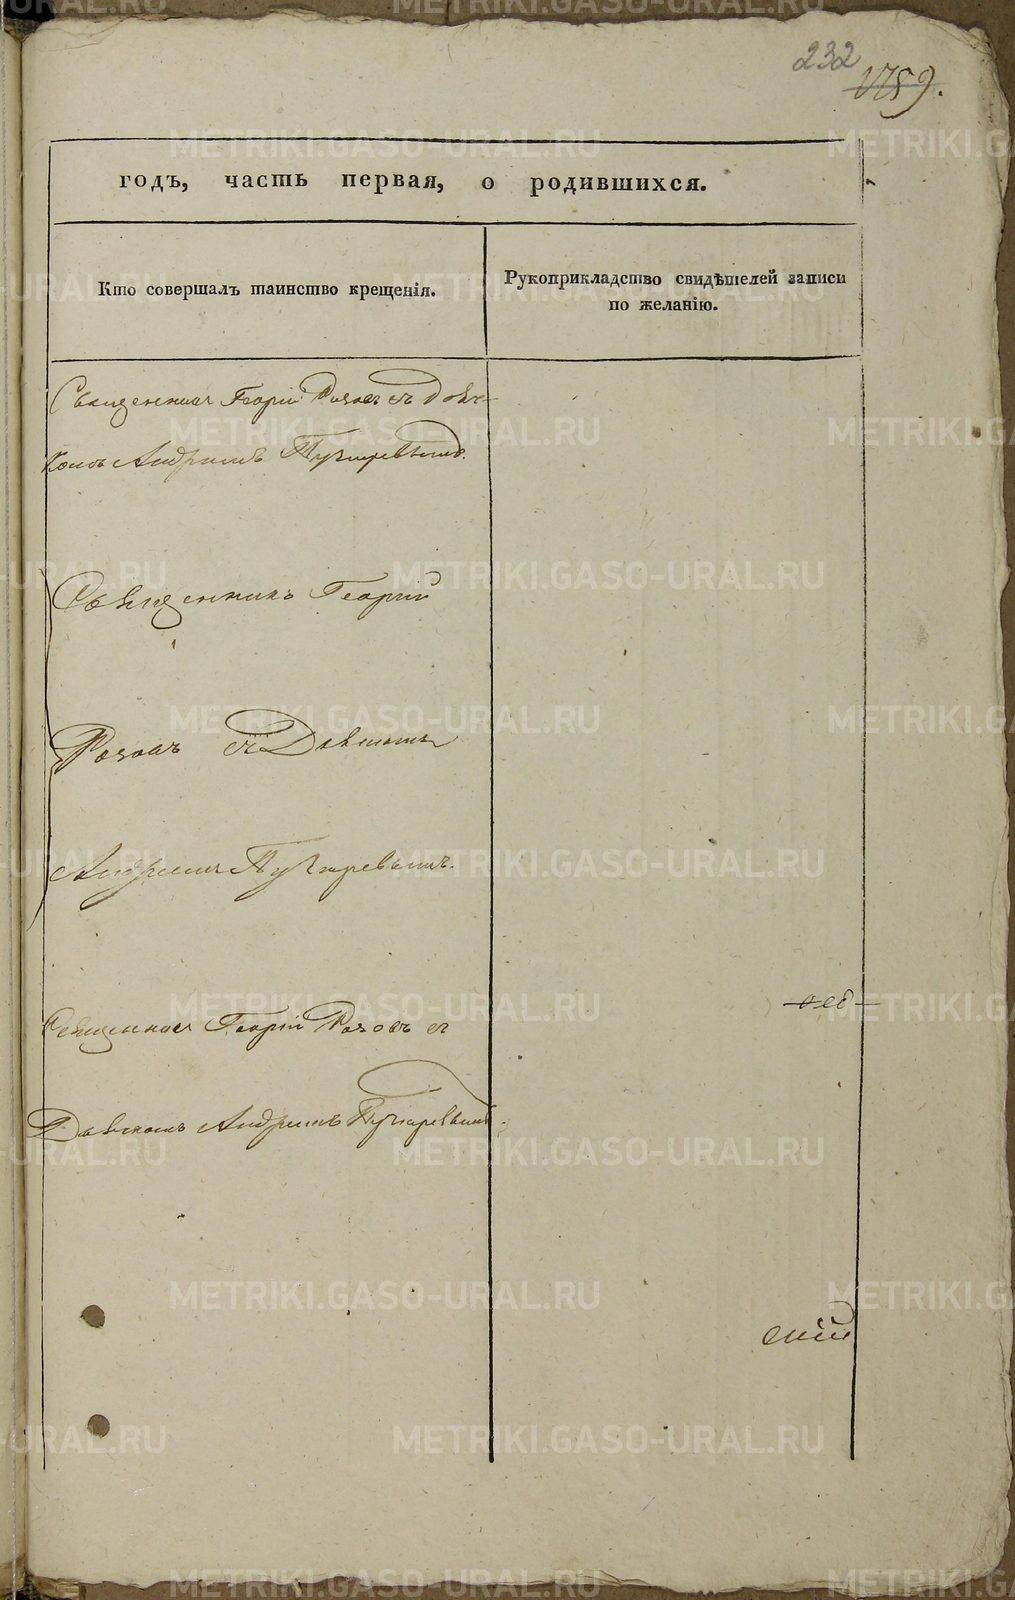 232
1759.
годъ, часть первая, о родившихся.
Кто совершалъ таинство крещенія.
Рукоприкладство свидѣтелей записи
по желанію.
Священникъ Георгій Розовъ съ Дьяч-
комъ Андреемъ Пузыревымъ.
Священникъ Георгій
Розовъ съ Дьячкомъ
Андреемъ Пузыревымъ.
Священникъ Георгій Розовъ съ
Дьячкомъ Андреемъ Пузыревымъ.
скій
METRIKI.GASO-URAL.RU